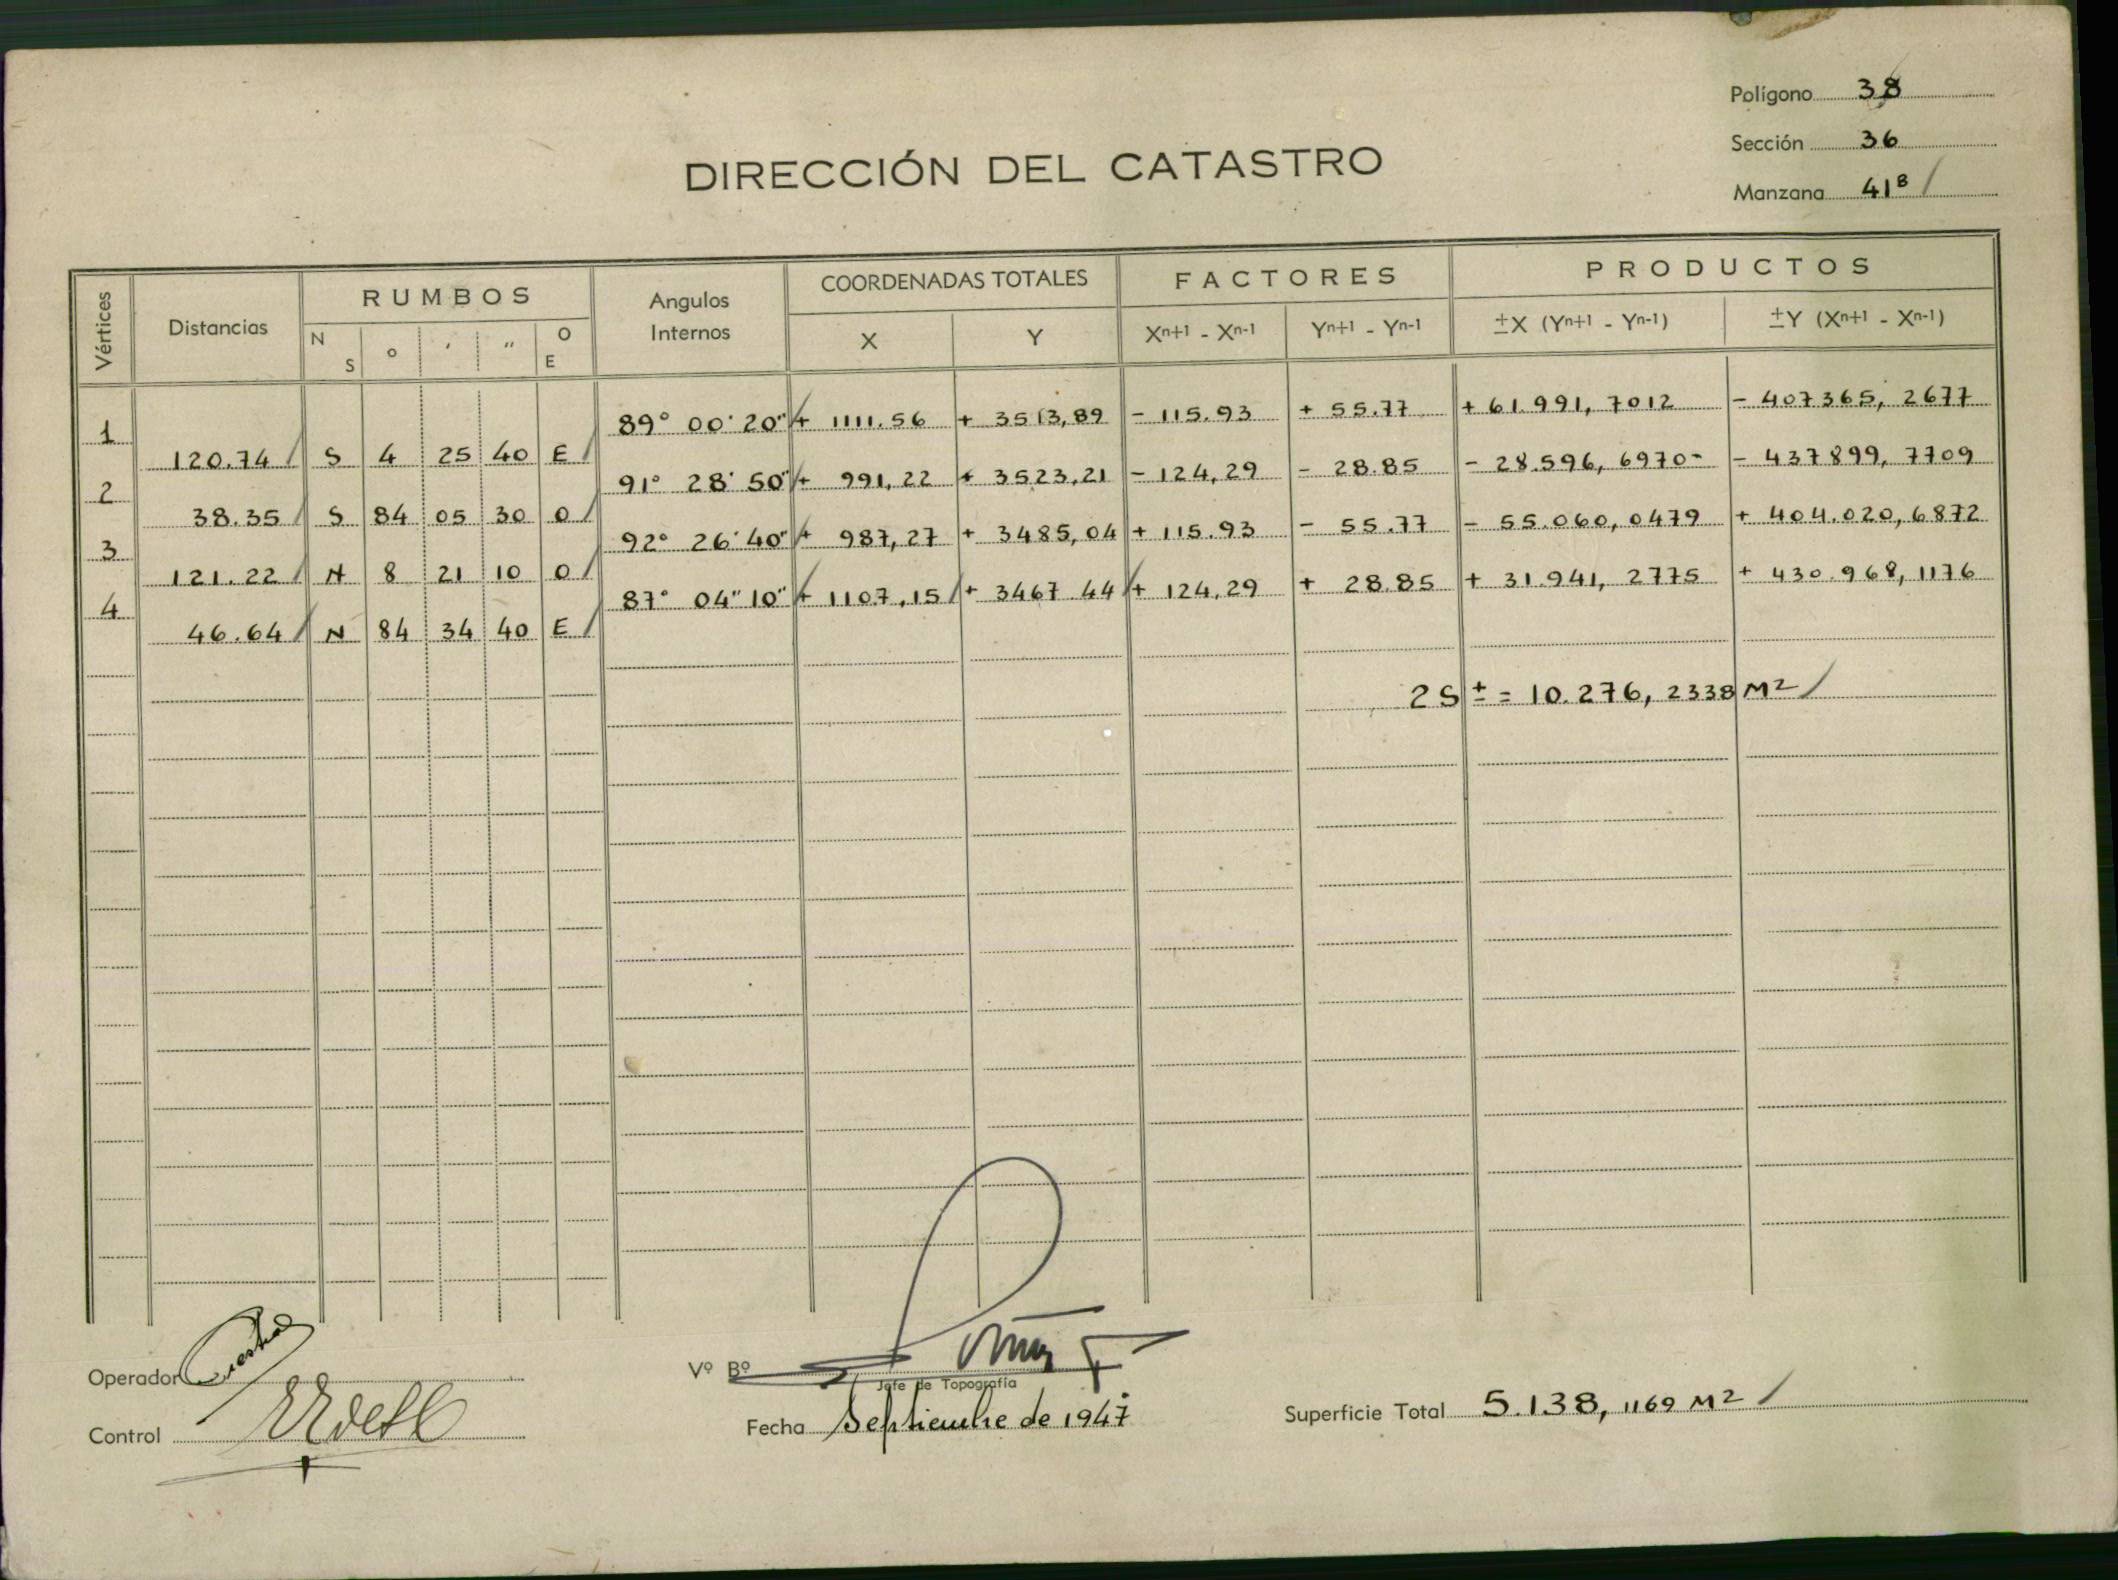 Polígono 38
Sección 36
Manzana 41B
DIRECCIÓN DEL CATASTRO
Vértices Distancias RUMBOS Angulos Internos COORDENADAS TOTALES FACTORES PRODUCTOS
N S o ' " O E X Y Xn+1 - Xn-1 Yn+1 - Yn-1 ±X (Yn+1 - Yn-1) ±Y (Xn+1 - Xn-1)
1 89° 00' 20" + 1111.56 + 3513,89 - 115.93 + 55.77 + 61.991, 7012 - 407365, 2677
120.74 S 4 25 40 E
2 91° 28' 50" + 991,22 + 3523,21 - 124,29 - 28.85 - 28.596, 6970- - 437899, 7709
38.35 S 84 05 30 O
3 92° 26' 40" + 987,27 + 3485,04 + 115.93 - 55.77 - 55.060,0479 + 404.020,6872
121.22 N 8 21 10 O
4 87° 04" 10" + 1107,15 + 3467 44 + 124,29 + 28.85 + 31.941, 2775 + 430.968,1176
46.64 N 84 34 40 E
2 S ± = 10.276, 2338 M2
Operador
Vº Bº
Jefe de Topografía
Control
Fecha Septiembre de 1947
Superficie Total 5.138, 1169 M2